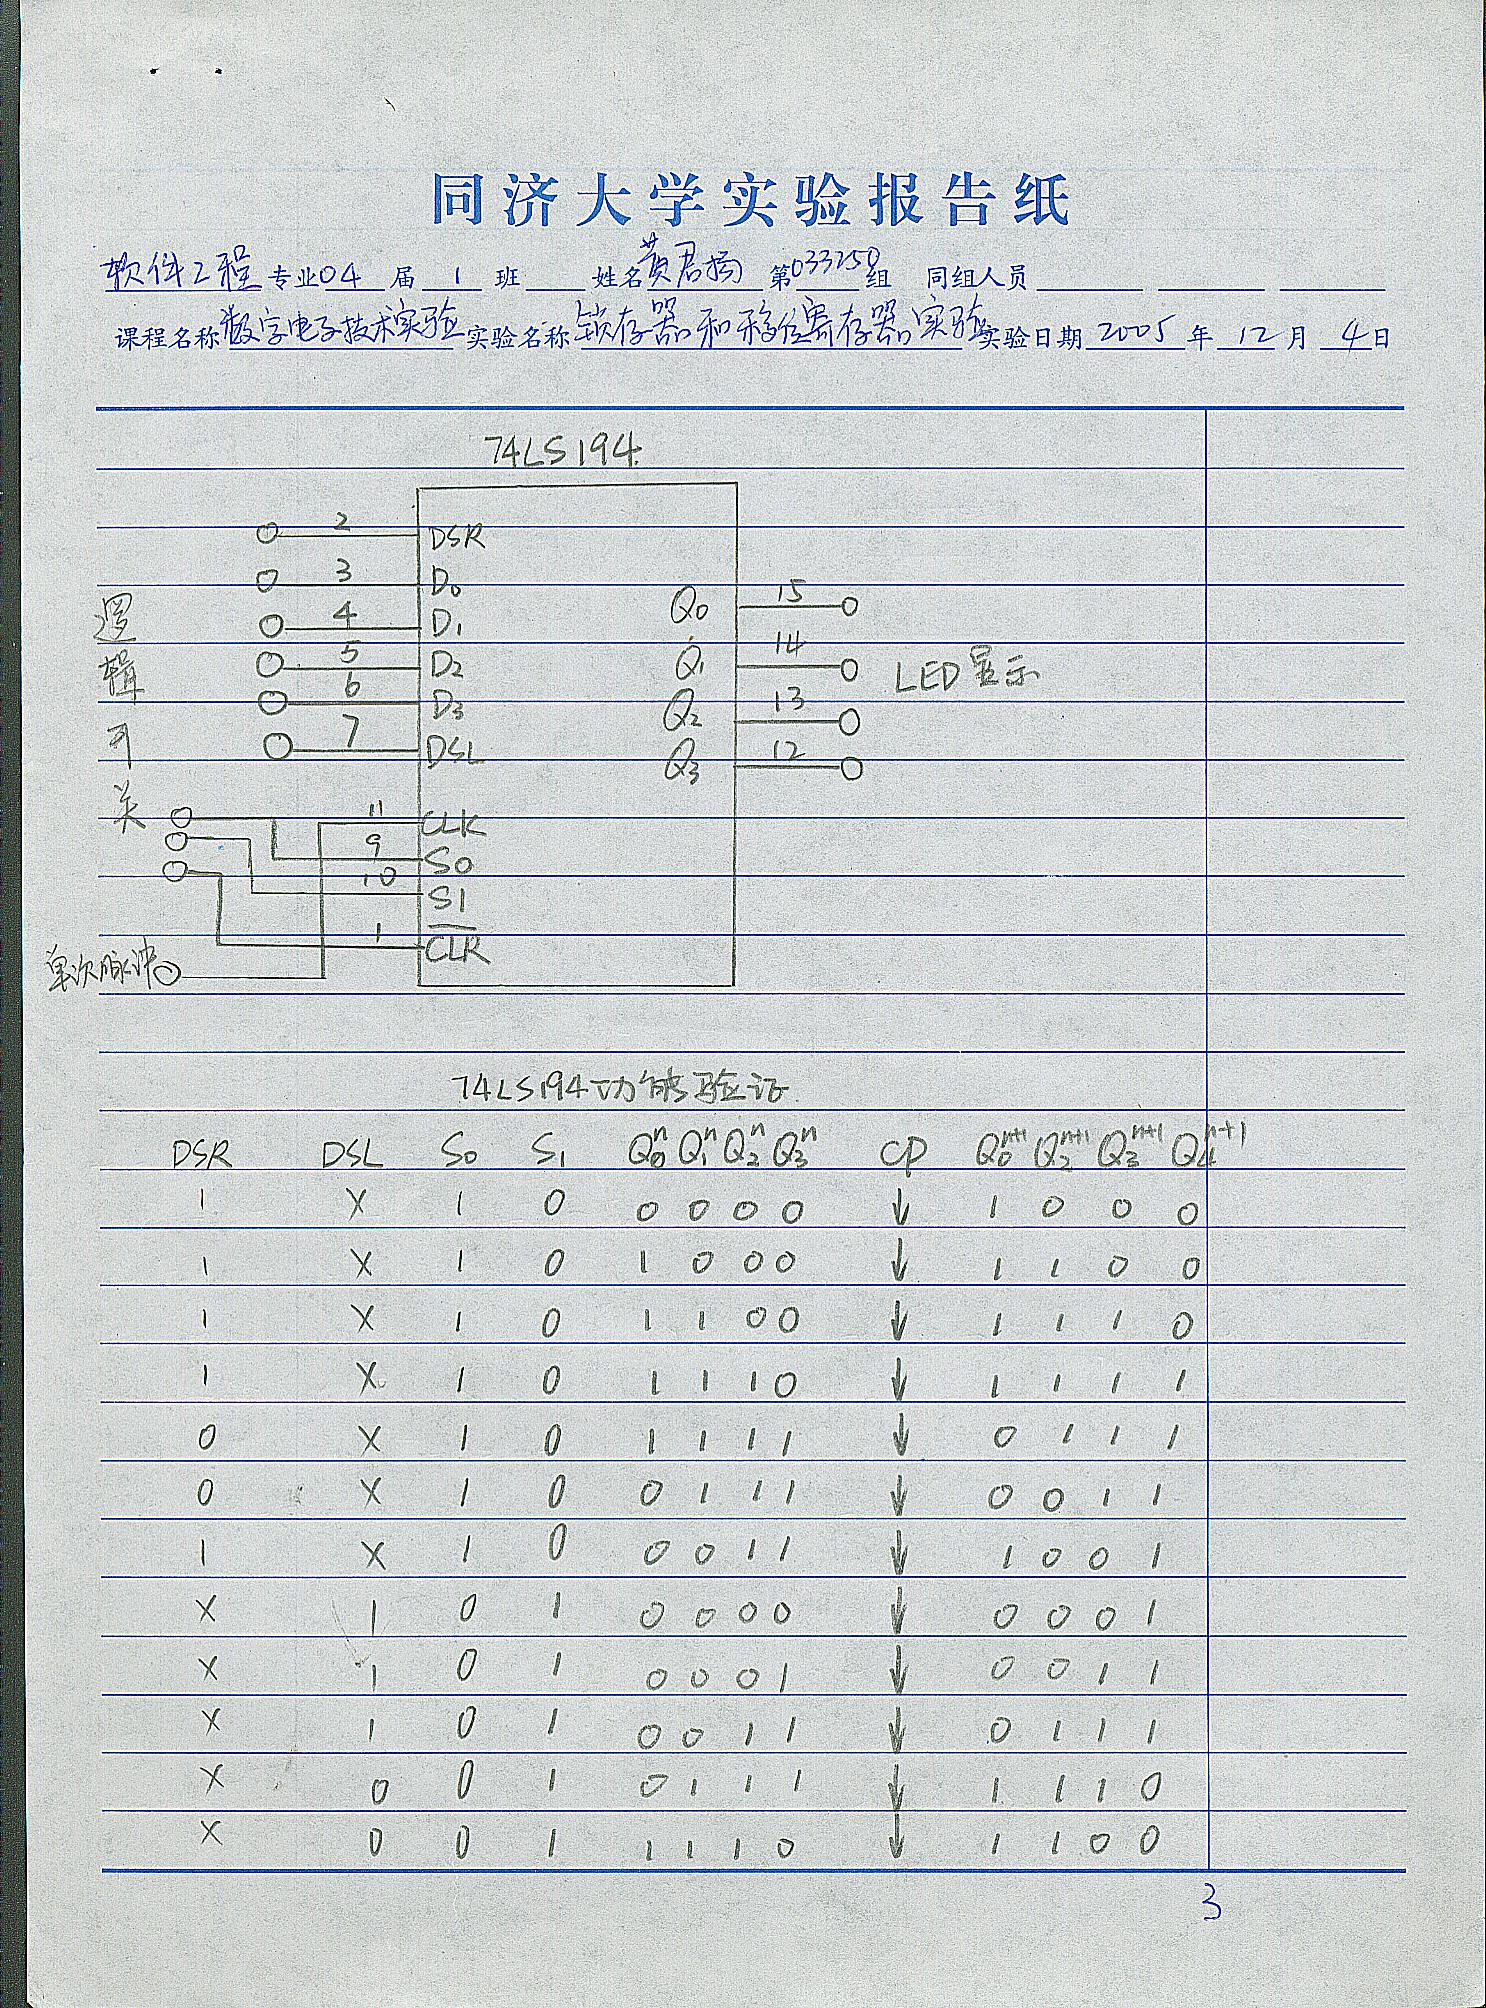 同济大学实验报告纸
软件工程专业04届1班 姓名黄君扬 第033250组 同组人员
课程名称数字电子技术实验 实验名称锁存器和移位寄存器实验 实验日期2005年12月4日
74LS194
2 DSR
3 D0
4 D1
5 D2
6 D3
7 DSL
逻辑开关
Q0 15
Q1 14
Q2 13
Q3 12
LED显示
11 CLK
9 S0
10 S1
1 C̅L̅R̅
单次脉冲
74LS194功能验证
DSR DSL S0 S1 Q0ⁿ Q1ⁿ Q2ⁿ Q3ⁿ CP Q0ⁿ⁺¹ Q2ⁿ⁺¹ Q3ⁿ⁺¹ Q4ⁿ⁺¹
1 X 1 0 0 0 0 0 ↓ 1 0 0 0
1 X 1 0 1 0 0 0 ↓ 1 1 0 0
1 X 1 0 1 1 0 0 ↓ 1 1 1 0
1 X 1 0 1 1 1 0 ↓ 1 1 1 1
0 X 1 0 1 1 1 1 ↓ 0 1 1 1
0 X 1 0 0 1 1 1 ↓ 0 0 1 1
1 X 1 0 0 0 1 1 ↓ 1 0 0 1
X 1 0 1 0 0 0 0 ↓ 0 0 0 1
X 1 0 1 0 0 0 1 ↓ 0 0 1 1
X 1 0 1 0 0 1 1 ↓ 0 1 1 1
X 0 0 1 0 1 1 1 ↓ 1 1 1 0
X 0 0 1 1 1 1 0 ↓ 1 1 0 0
3